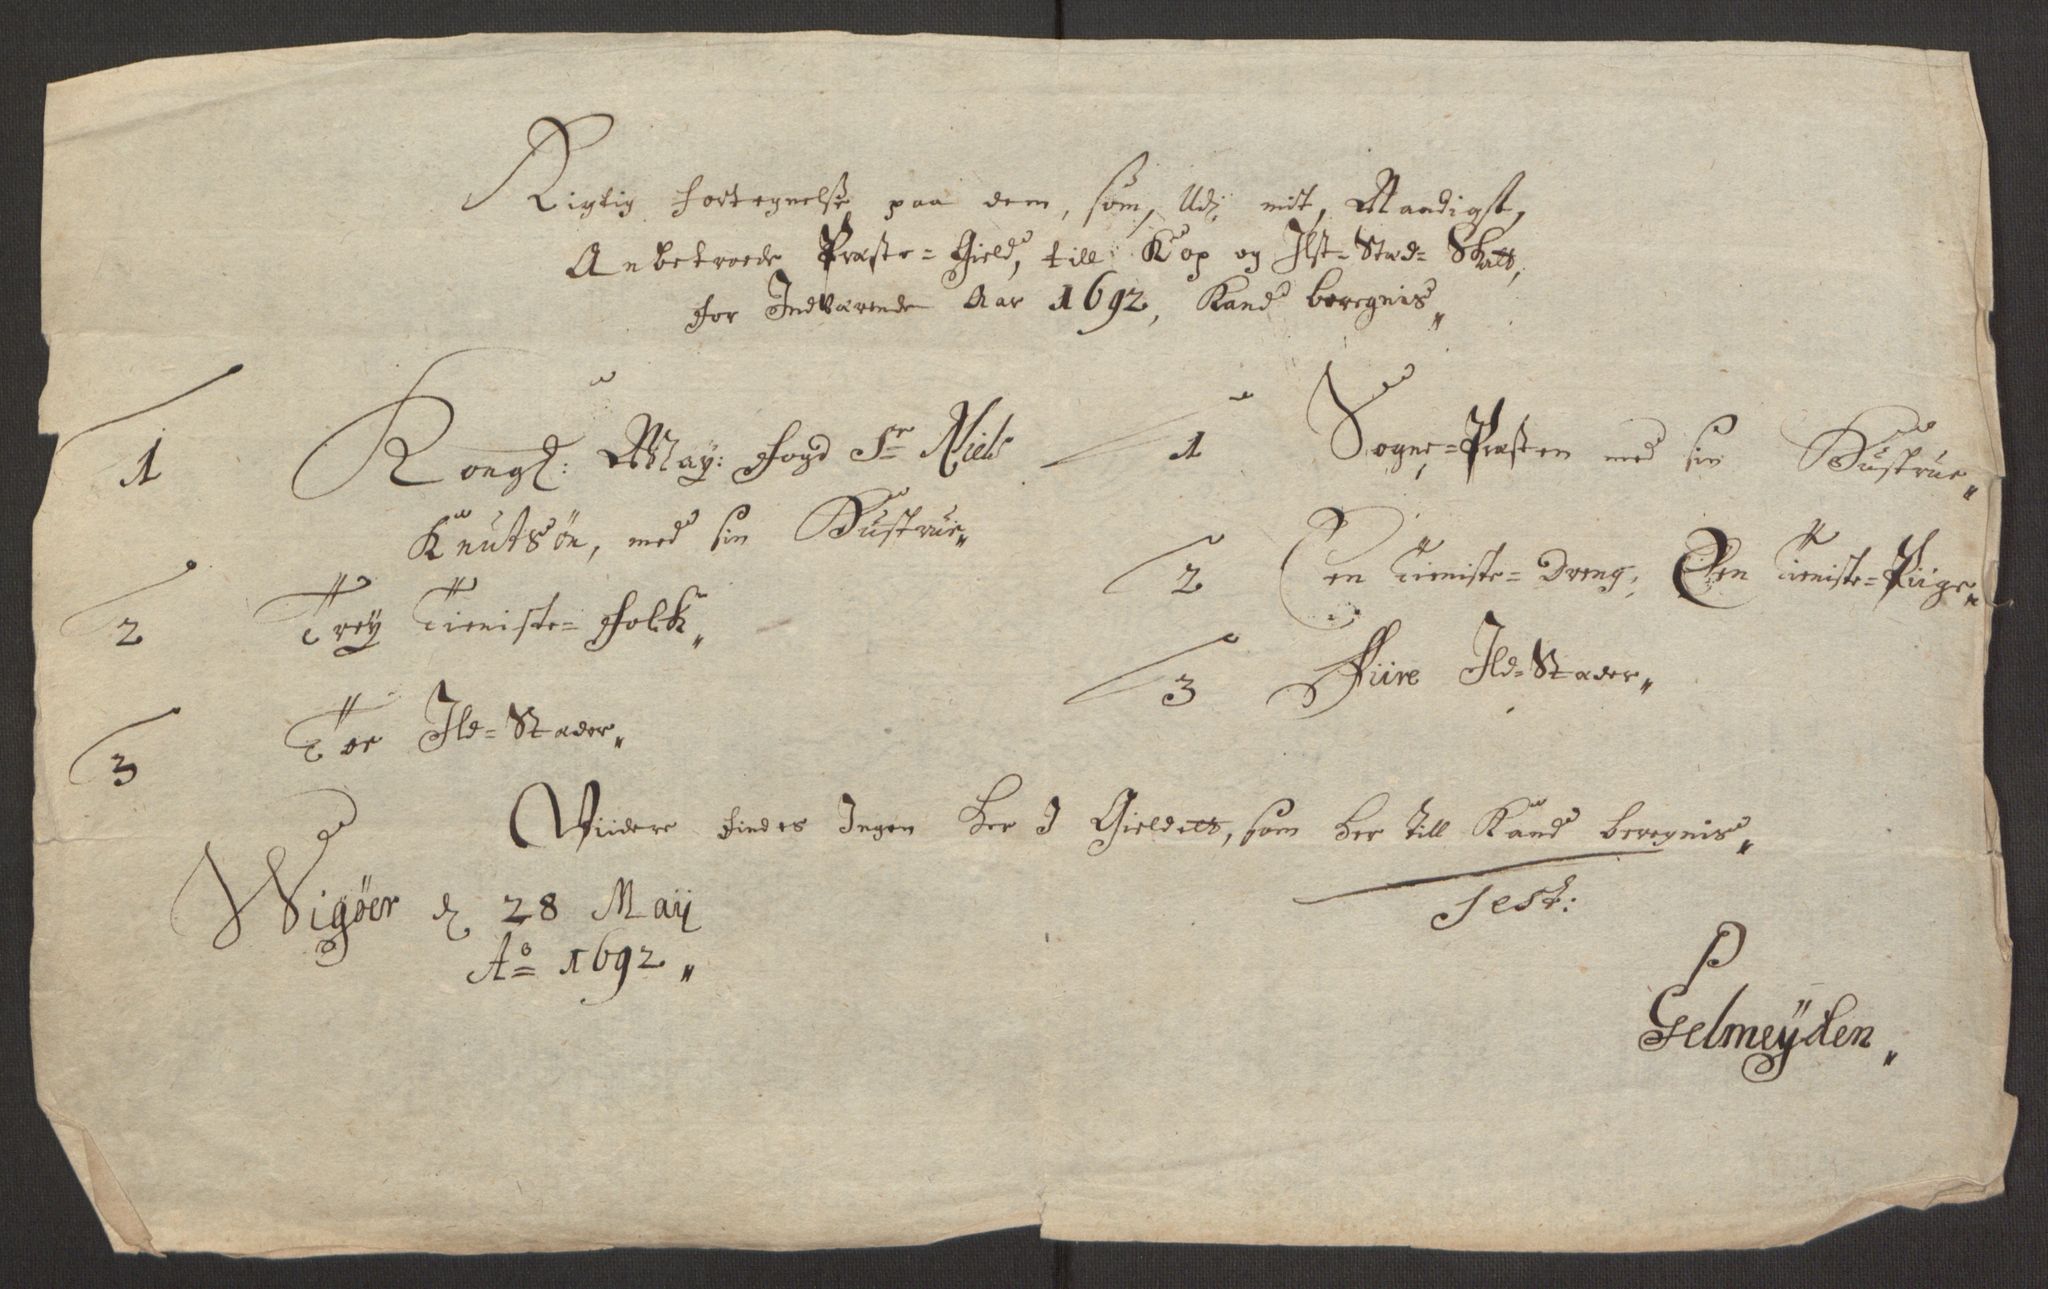 Rigtig fortegnelse paa dem, som, Udj mit, Naadigst,
Anbetroede Præste=Gield, till Kop og Ilst=Stæd=Skatt,
for Indværende Aar 1692, Kand beregnis„
1 Kongl: May: fogd Sr Niels
Knutsøn, med sin Hustrue„
2 Trey Tieniste=folck„
3 Toe Ild=Stæder„
1 Sogne=Præsten med sin Hustrue„
2 Een Tieniste=Dreng, Een Tieniste=Piige„
3 Fiire Ild=Stæder„
Viidere findes Ingen her I Gieldett, som her till Kand beregnis„
Test:
Wigøer d 28 Maij
Ao 1692„
P
Gelmeÿden„